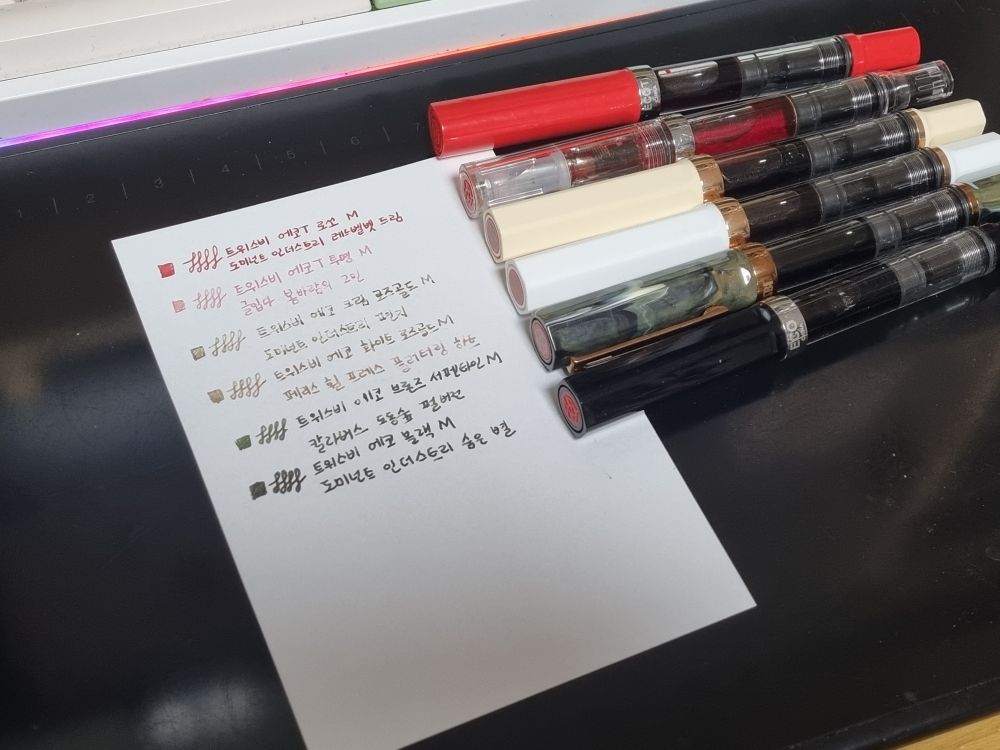 트위스비 에코T 로쏘 M
도미넌트 인더스트리 레드벨벳 드림
트위스비 에코T 투명 M
글입다 봄바람의 고민
트위스비 에코 크림 로즈골드 M
도미넌트 인더스트리
트위스비 에코 화이트 로즈골드 M
페리스 휠 프레스 플러터링 하츠
트위스비 에코 브론즈 서펜타인 M
칼라버스 도동숲 펄버전
트위스비 에코 블랙 M
도미넌트 인더스트리 숨은 별
ECO
ECO
1 2 3 4 5 6 7